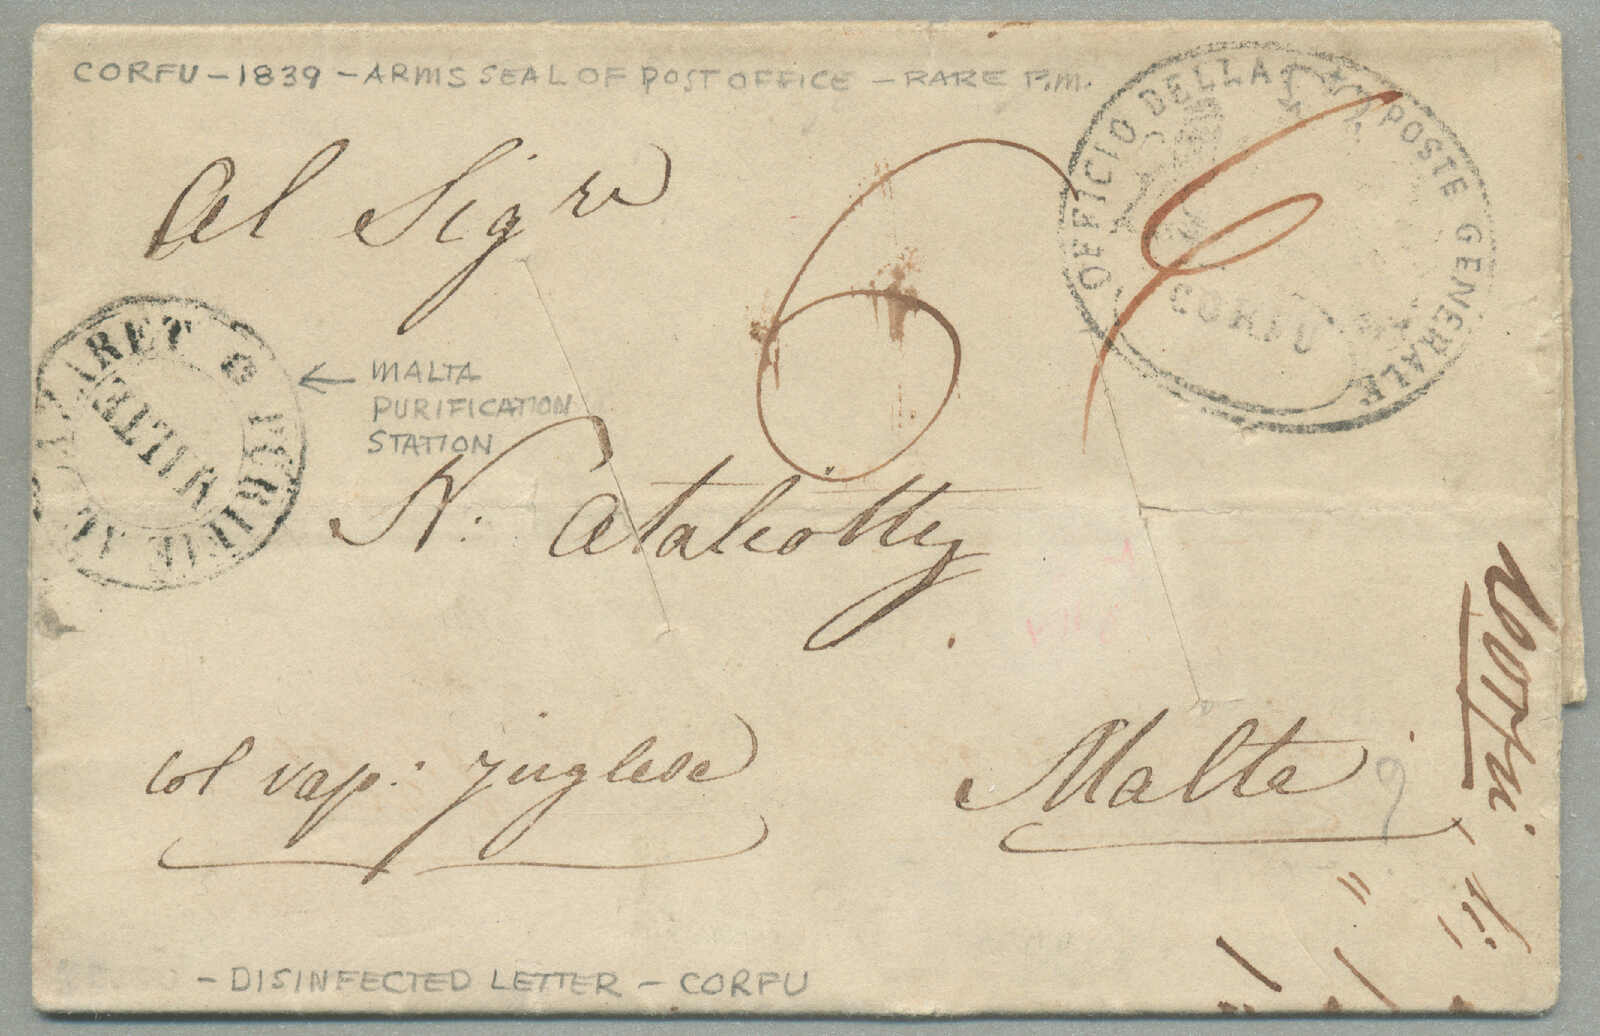 CORFU – 1839 – ARMS SEAL OF POST OFFICE – RARE P.M.
OFFICIO DELLA POSTE GENERALE
CORFU
Al Sigre
6
PURIFIÉ AU LAZARET
MALTE
← MALTA
PURIFICATION
STATION
N: Ataliotty
col vap: Inglese
Malta
9
Corfu
– DISINFECTED LETTER – CORFU